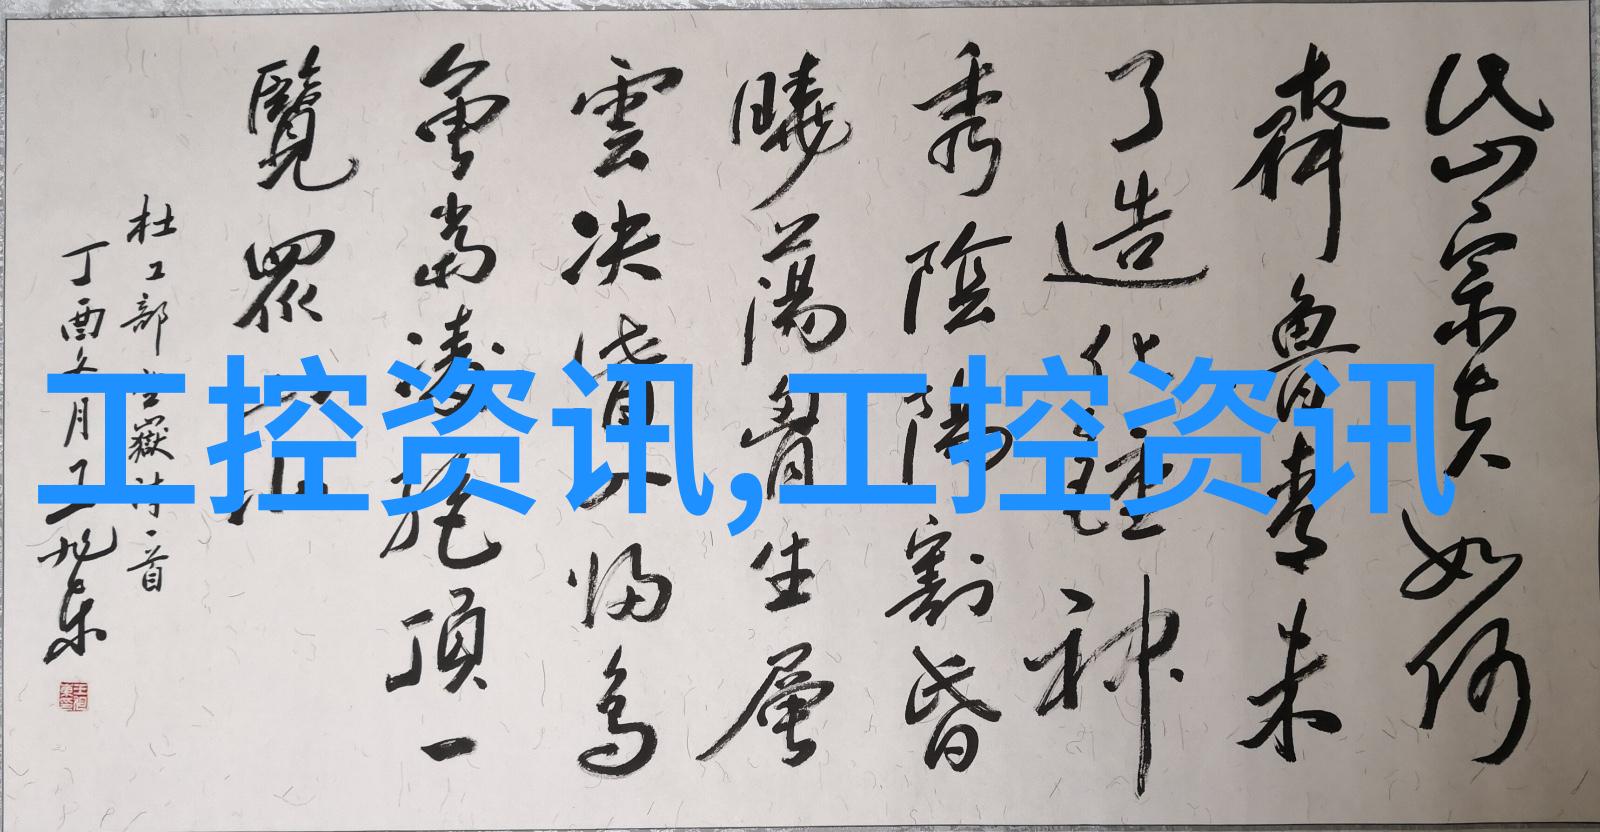 岱宗夫如何
齊魯青未
了造化鍾神
秀陰陽割昏
曉蕩胷生層
雲決眥入歸鳥
會當凌絕頂一
覽眾山小
杜工部望嶽詩一首
丁酉冬月王旭東
工控资讯,工控资讯